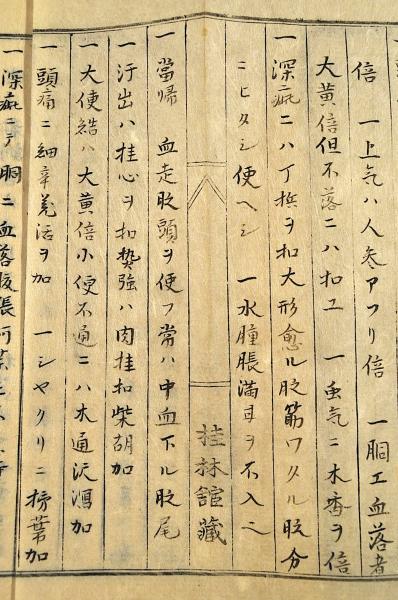 倍 一上気ハ人参アフリ倍 一胴エ血落者
大黄倍但不落ニハ加エ 一虫気ニ木香ヲ倍
一深疵ニハ丁 ヲ加大形愈ル時筋ワタル時分
ニヒタシ便ヘシ 一水腫脹満 ヲ不入ニ
桂林舘藏
一當帰 血走時頭ヲ便フ常ハ中血下ル時尾
一汗出ハ桂心ヲ加 強ハ肉桂加柴胡加
一大便結ハ大黄倍小便不通ニハ木通沢瀉加
一頭痛ニ細辛羌活ヲ加 一シヤクリニ 葉加
一深疵ニテ胴ニ血落腹張